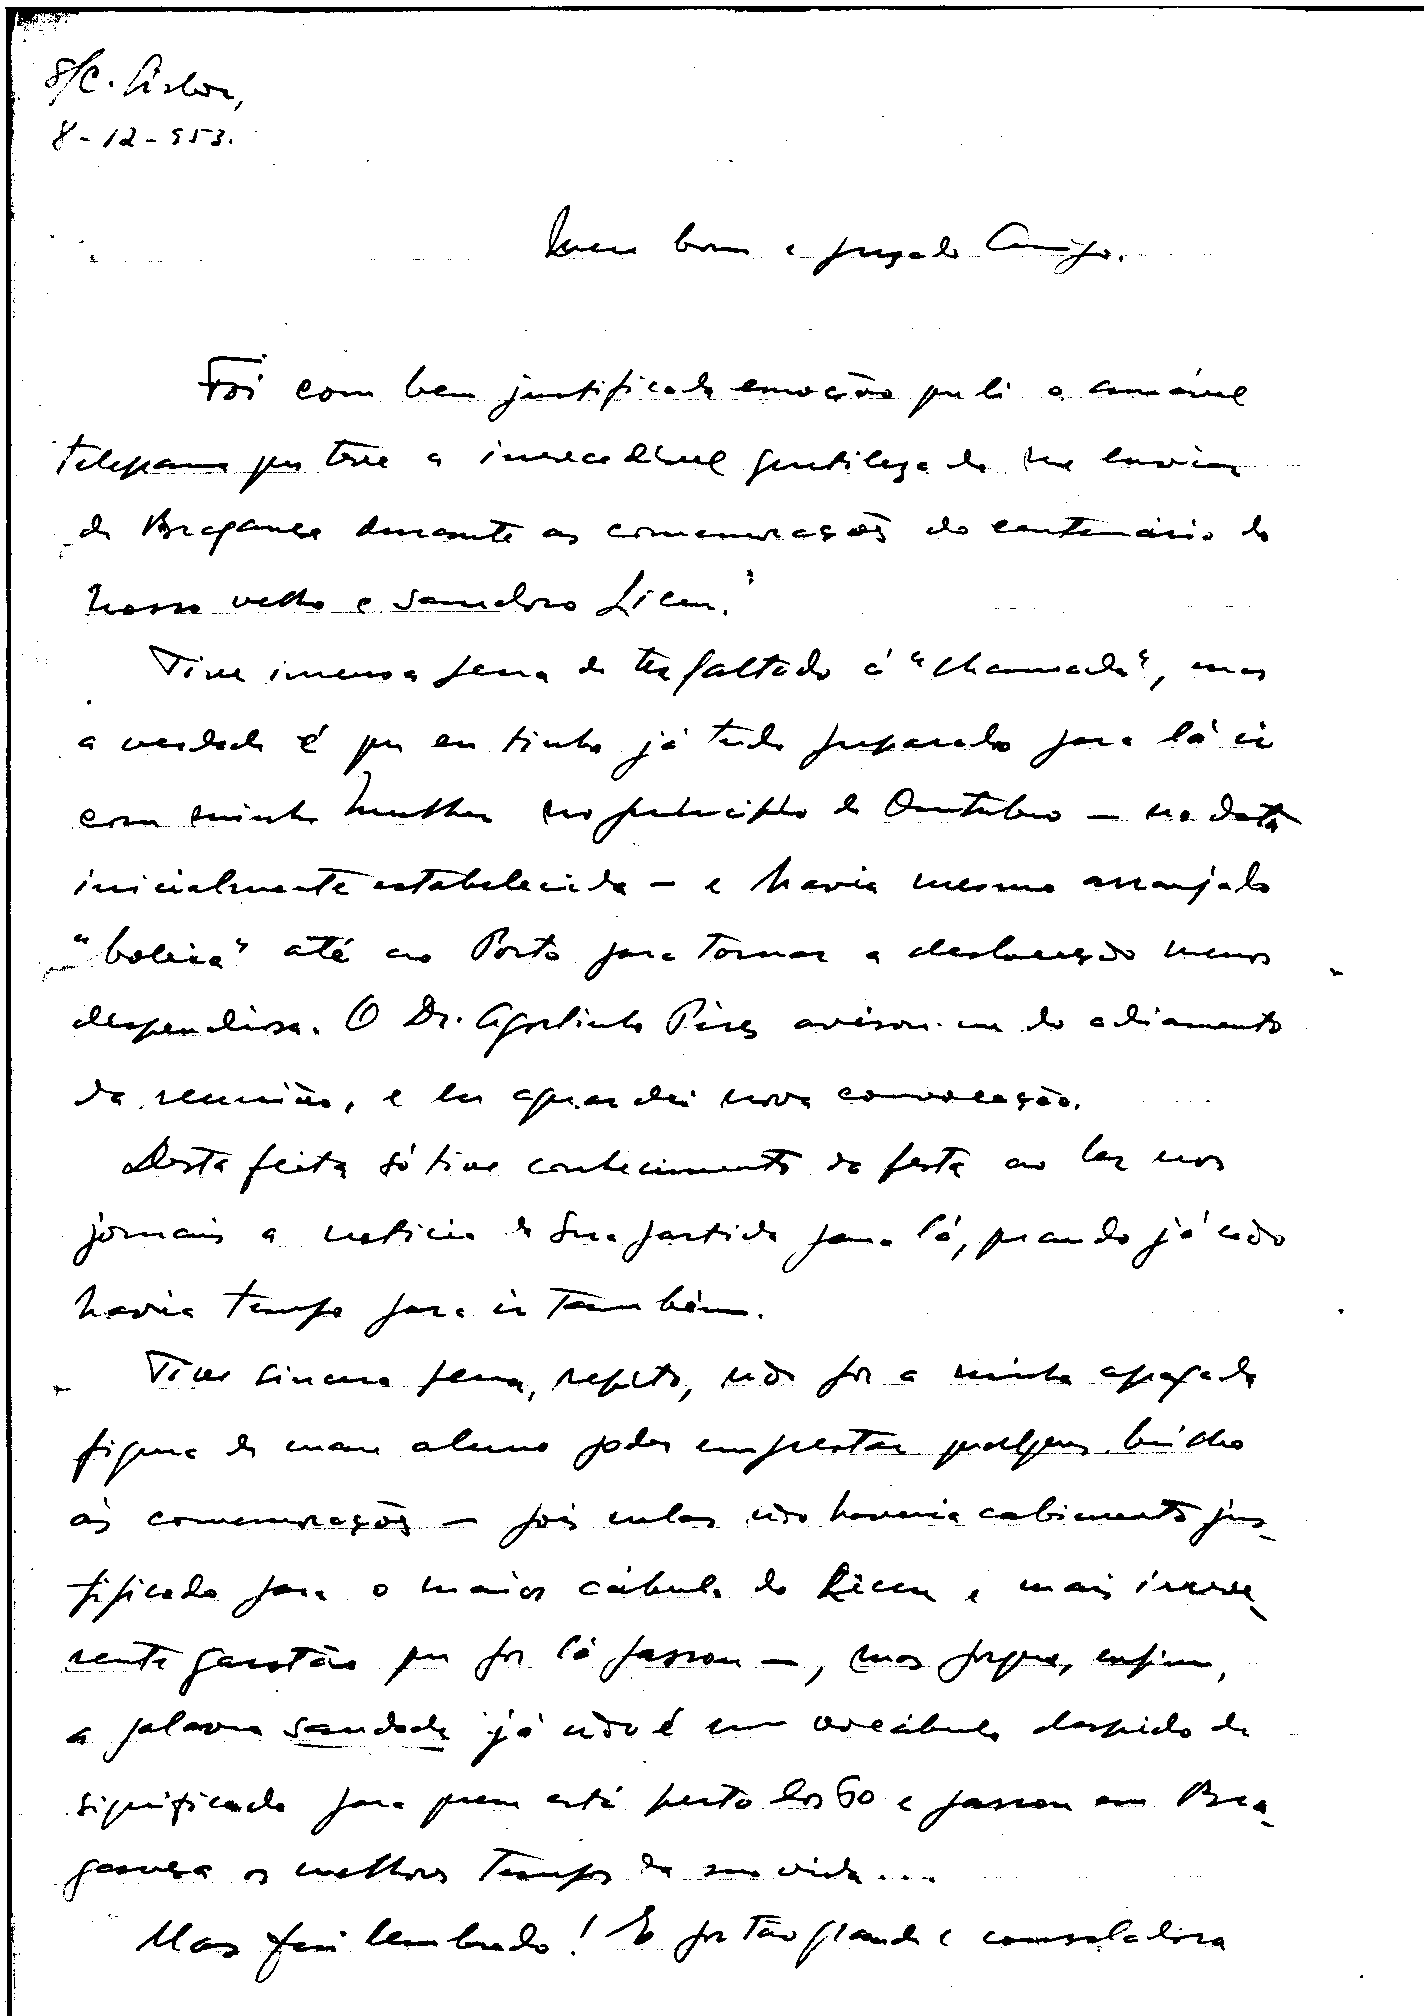 S/C. Lisboa,
8-12-953.
Meu bom e prezado Amigo.
Foi com bem justificada emoção que li o amável
telegrama que teve a inexcedível gentileza de me enviar
de Bragança durante as comemorações do centenário do
nosso velho e saudoso Liceu.
Tive imensa pena de ter faltado á "chamada", mas
a verdade é que eu tinha já tudo preparado para lá ir
com minha Mulher no princípio de Outubro — na data
inicialmente estabelecida — e havia mesmo arranjado
"boleia" até ao Porto para tornar a deslocação menos
despendiosa. O Dr. Agostinho Pires avisou-me do adiamento
da reunião, e eu aguardei nova convocação.
Desta feita só tive conhecimento da festa ao ler nos
jornais a notícia da Sua partida para lá, quando já não
havia tempo para ir também.
Tive sincera pena, repito, não por a minha apagada
figura de mau aluno poder emprestar qualquer brilho
ás comemorações — pois nelas não haveria cabimento jus-
tificado para o maior cábula do Liceu e mais irreve-
rente garotão que por lá passou —, mas porque, enfim,
a palavra saudade já não é um vocábulo despido de
significado para quem está perto dos 60 e passou em Bra-
gança os melhores tempos da sua vida...
Mas fui lembrado! E foi tão grande e consoladora